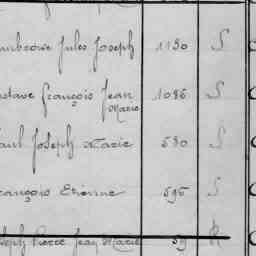 Jules Joseph 1130 S
Gustave François Jean Marie 1086 S
Paul Joseph Marie 580 S
François Etienne 595 S
Joseph Pierre Jean Marie 59 R